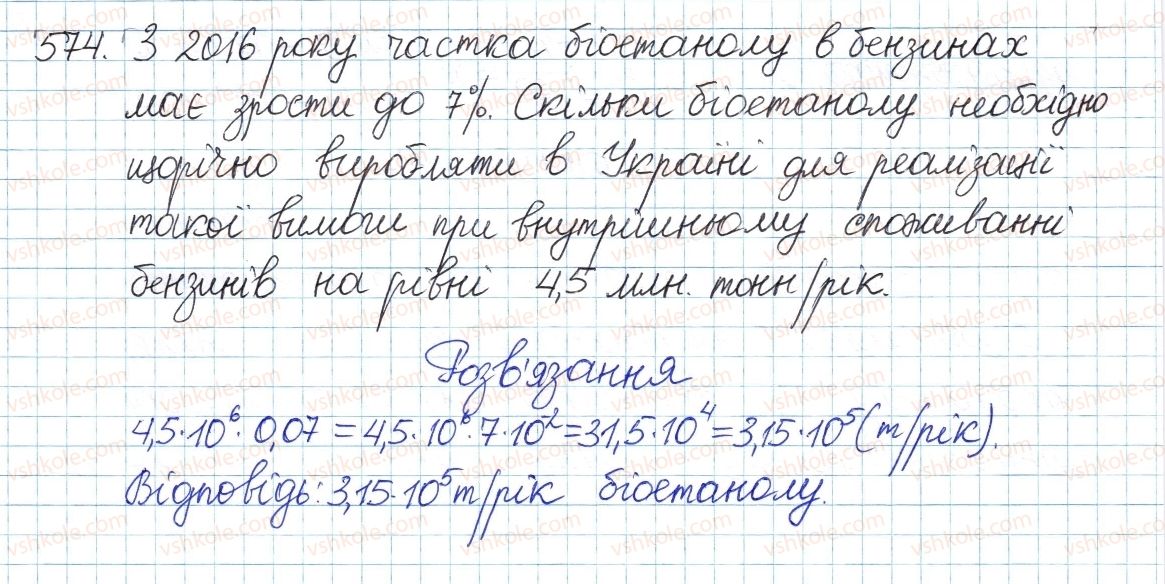 574. З 2016 року частка біоетанолу в бензинах
має зрости до 7%. Скільки біоетанолу необхідно
щорічно виробляти в Україні для реалізації
такої вимоги при внутрішньому споживанні
бензинів на рівні 4,5 млн. тонн/рік.
Розв'язання
4,5·10⁶·0,07 = 4,5·10⁶·7·10⁻² = 31,5·10⁴ = 3,15·10⁵ (т/рік).
Відповідь: 3,15·10⁵ т/рік біоетанолу.